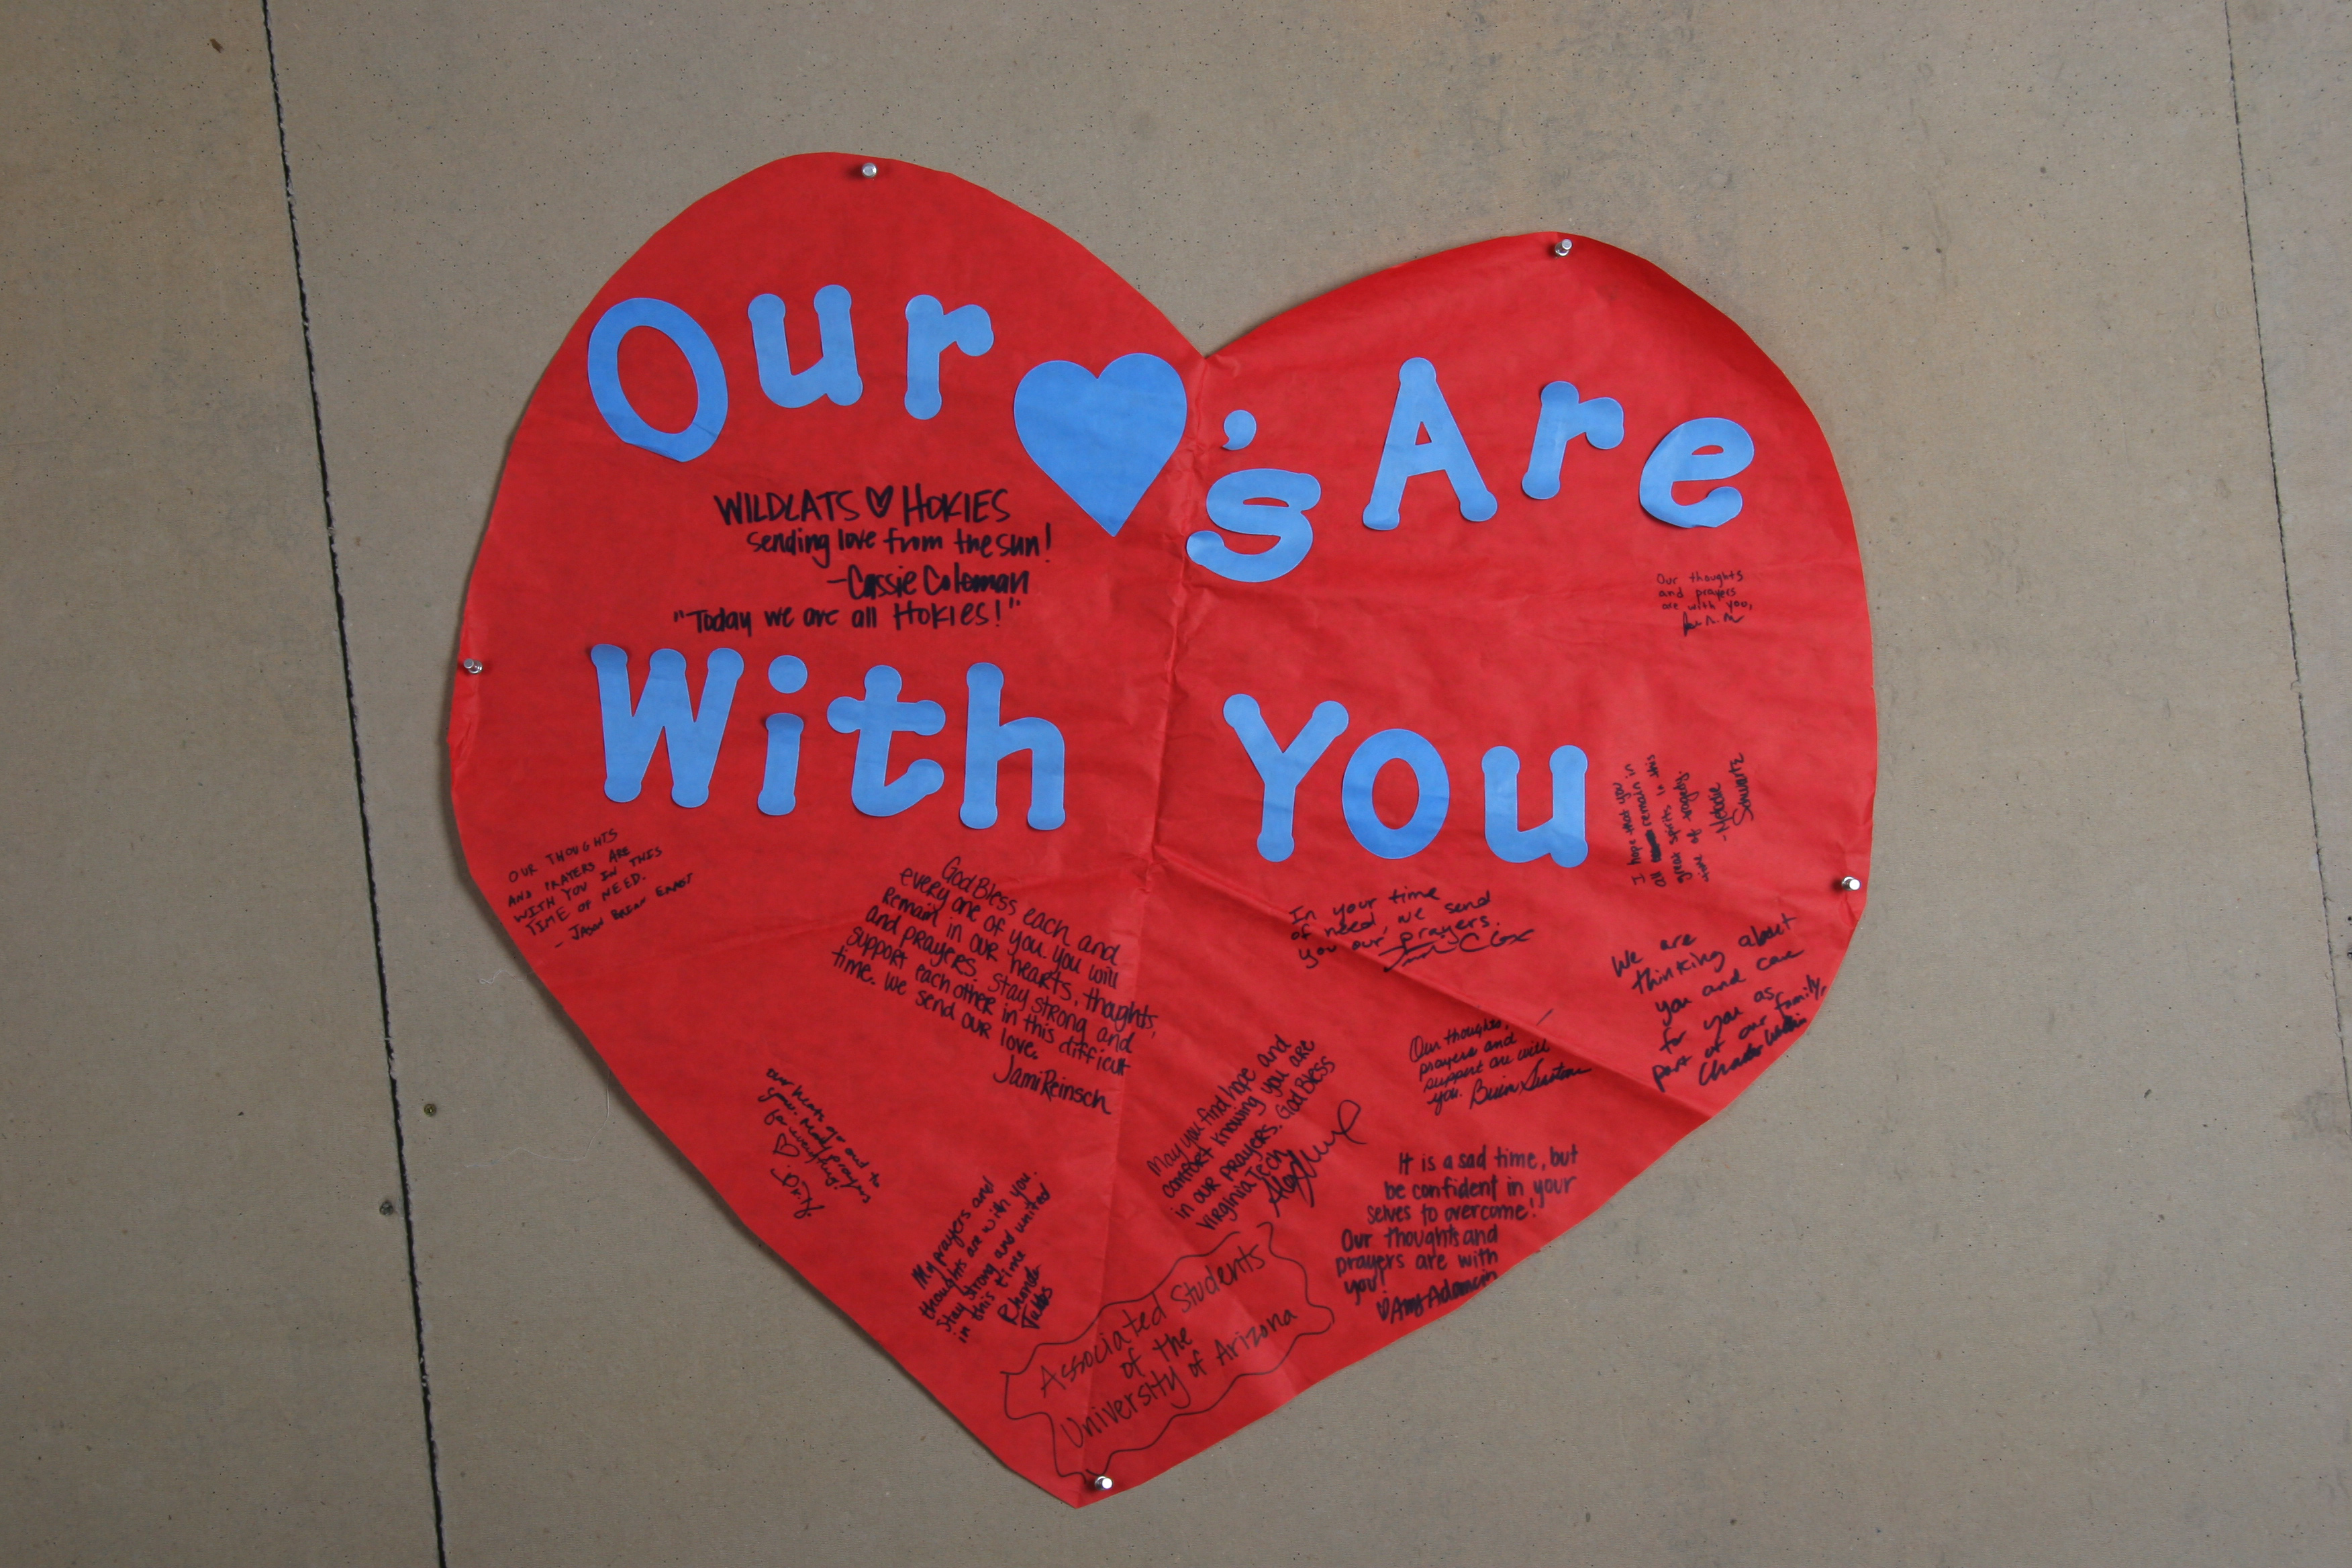 Our ♥'s Are
WILDCATS ♡ HOKIES
sending love from the sun!
-Cassie Coleman
"Today we are all Hokies!"
Our thoughts
and prayers
are with you,
With You
I hope that you in
all remain in this
great spirits in this
time of tragedy.
-Melodie
Schwartz
OUR THOUGHTS
AND PRAYERS ARE
WITH YOU IN THIS
TIME OF NEED.
- JASON BRIAN ERNST
God Bless each and
every one of you. You will
Remain in our hearts, thoughts,
and prayers. Stay strong and
support each other in this difficult
time. We send our love.
Jami Reinsch
In your time
of need, we send
you our prayers.
We are
thinking about
you and care
for you as
part of our family,
Our thoughts,
prayers and
support are with
you.
May you find hope and
comfort knowing you are
in our prayers. God Bless
Virginia Tech
our hearts go out to
you. Many prayers
for everything!
♡
It is a sad time, but
be confident in your
selves to overcome!
Our thoughts and
prayers are with
you!
♡ Amy Adamcin
My prayers and
thoughts are with you.
Stay strong and united
in this time
Rhonda
Tubbs
Associated Students
of the
University of Arizona